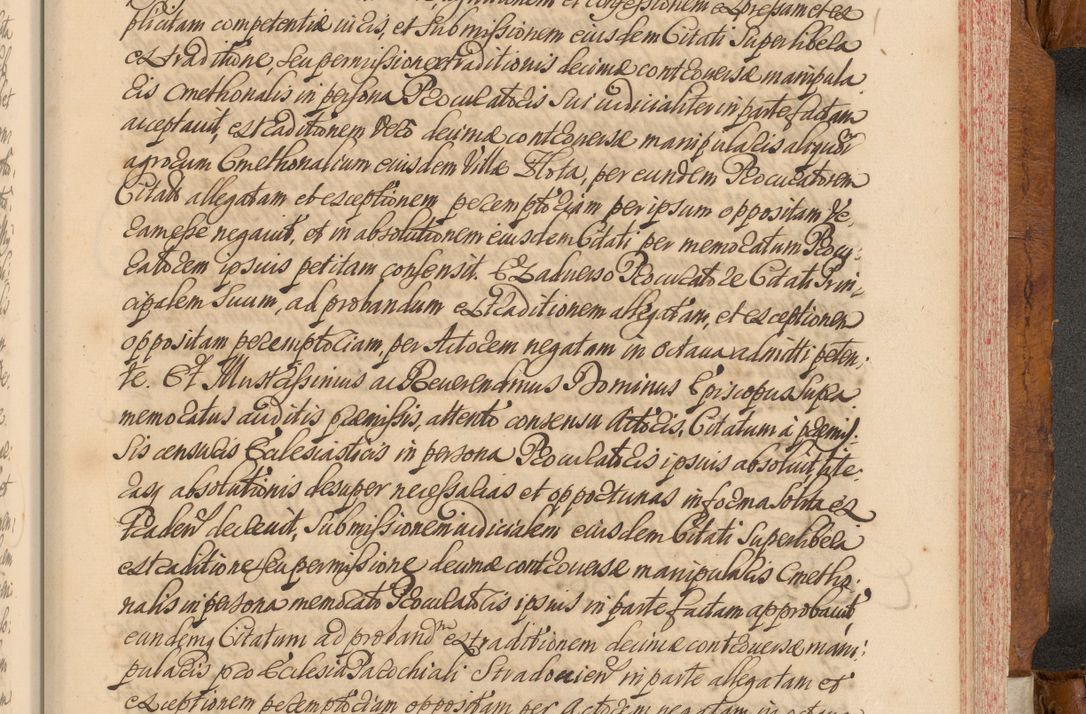 plicitam competentiæ iuris, et submissionem eiusdem Citati super libera
extraditione, seu permissione extraditionis decimæ controversæ manipula
ris Cmethonalis in persona Procuratoris sui iudicialiter in parte factam
acceptavit, extraditionem vero decimæ controversæ manipularis aliquor
agrorum Cmethonalium eiusdem Villæ Zlota, per eundem Procuratorem
Citati allegatam et exceptionem peremptoriam per ipsum oppositam Ve
ram esse negavit, et in absolutionem eiusdem Citati per memoratum Procu
ratorem ipsius petitam consensit. Ex adverso Procuratore Citati Prin
cipalem suum, ad probandum extraditionem allegatam, et exceptionem
oppositam peremptoriam, per Actorem negatam in octava admitti peten
te. Et Illustrissimus ac Reverendmus Dominus Episcopus supra
memoratus auditis præmissis, attento consensu Actoris, Citatum à præmis
sis censuris Ecclesiasticis in persona Procuratoris ipsius absolvit, lite
rasq absolutionis desuper necessarias et opportunas in forma solita ex
traden decrevit, submissionem iudicialem eiusdem Citati super libera
extraditione seu permissione decimæ controversæ manipularis Cmetho
nalis in persona memorato Procuratoris ipsius in parte factam approbavit,
eundemq Citatum ad proband extraditionem decimæ controversæ mani
pularis pro Ecclesia Parochiali Stradovien in parte allegatam et
exceptionem peremptoriam oppositam per Actorem negatam in octava